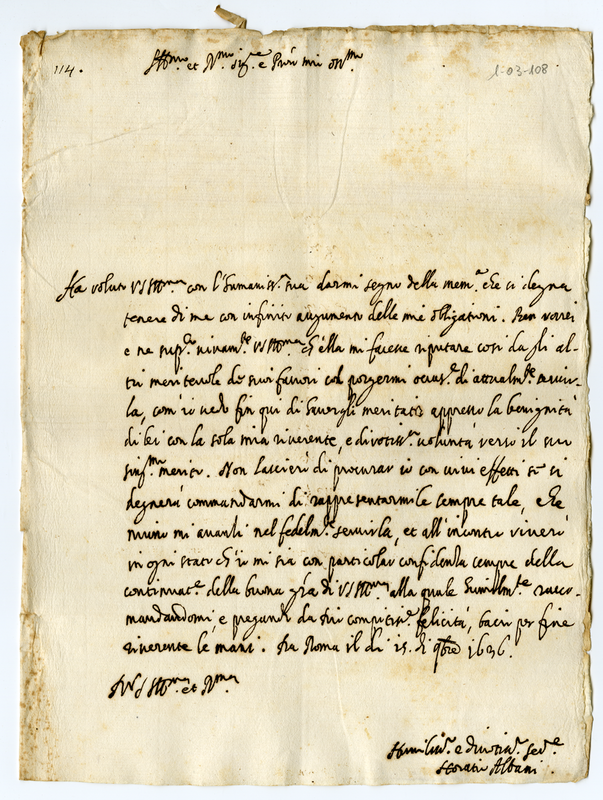 114.
Ill.mo et R.mo Sig.re e Pròn mio oss.mo
1-03-108
Ha voluto VS Ill.ma con l'humaniss.a sua darmi segno della mem.a che si degna
tenere di me con infinito augumento delle mie obligationi. Ben vorrei
e ne sup.co vivam.te VS Ill.ma ch'ella mi facesse riputare così da gli al-
tri meritevole de suoi favori col porgermi occas.e di attualm.te servir-
la, com'io vedo fin qui di havergli meritati appresso la benignità
di lei con la sola mia riverente, e divotiss.a volontà verso il suo
sing.mo merito. Non lascierò di procurar io con vivi effetti se si
degnerà commandarmi di rappresentarmile sempre tale, che
niuno mi avanzi nel fedelm.te servirla, et all'incontro viverò
in ogni stato ch'io mi sia con particolar confidenza sempre della
continuat.e della buona gr̃a di VS Ill.ma alla quale humilm.te racco-
mandandomi, e pregando da Dio compitiss.a felicità, bacio per fine
riverente le mani. Da Roma il di 15. di 9bre 1636.
Di VS Ill.ma et R.ma
Humiliss.o e divotiss.o Se.re
Horatio Albani